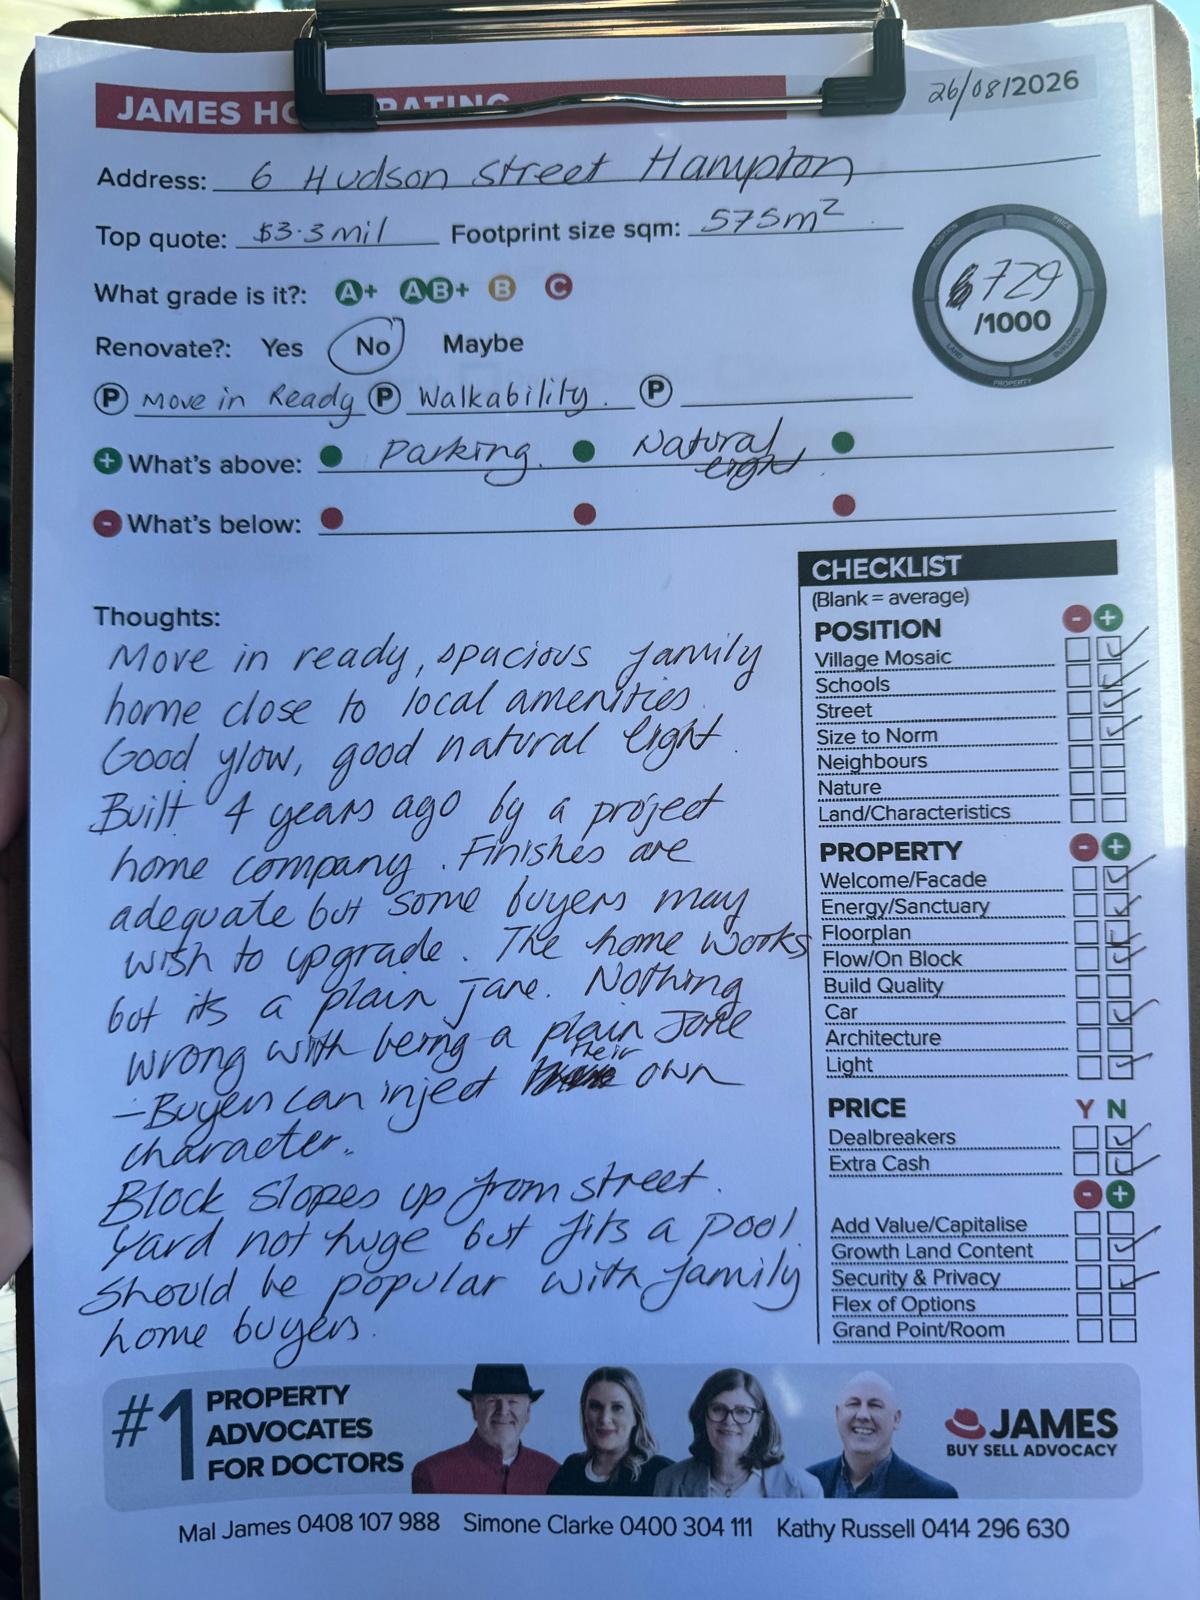 JAMES HO RATING
26/08/2026
Address: 6 Hudson Street Hampton
Top quote: $3.3 mil Footprint size sqm: 575m²
What grade is it?: A+ AB+ B C
729
/1000
POSITION PRICE BUILDING PROPERTY LAND
Renovate?: Yes No Maybe
P Move in Ready P Walkability. P
+ What's above: Parking. Natural
light
- What's below:
Thoughts:
Move in ready, spacious family
home close to local amenities.
Good flow, good natural light.
Built 4 years ago by a project
home company. Finishes are
adequate but some buyers may
wish to upgrade. The home works
but its a plain jane. Nothing
wrong with being a plain Jane
– Buyers can inject their own
character.
Block slopes up from street.
Yard not huge but fits a pool.
Should be popular with family
home buyers.
CHECKLIST
(Blank = average)
POSITION - +
Village Mosaic
Schools
Street
Size to Norm
Neighbours
Nature
Land/Characteristics
PROPERTY - +
Welcome/Facade
Energy/Sanctuary
Floorplan
Flow/On Block
Build Quality
Car
Architecture
Light
PRICE Y N
Dealbreakers
Extra Cash
- +
Add Value/Capitalise
Growth Land Content
Security & Privacy
Flex of Options
Grand Point/Room
#1 PROPERTY
ADVOCATES
FOR DOCTORS
JAMES
BUY SELL ADVOCACY
Mal James 0408 107 988 Simone Clarke 0400 304 111 Kathy Russell 0414 296 630